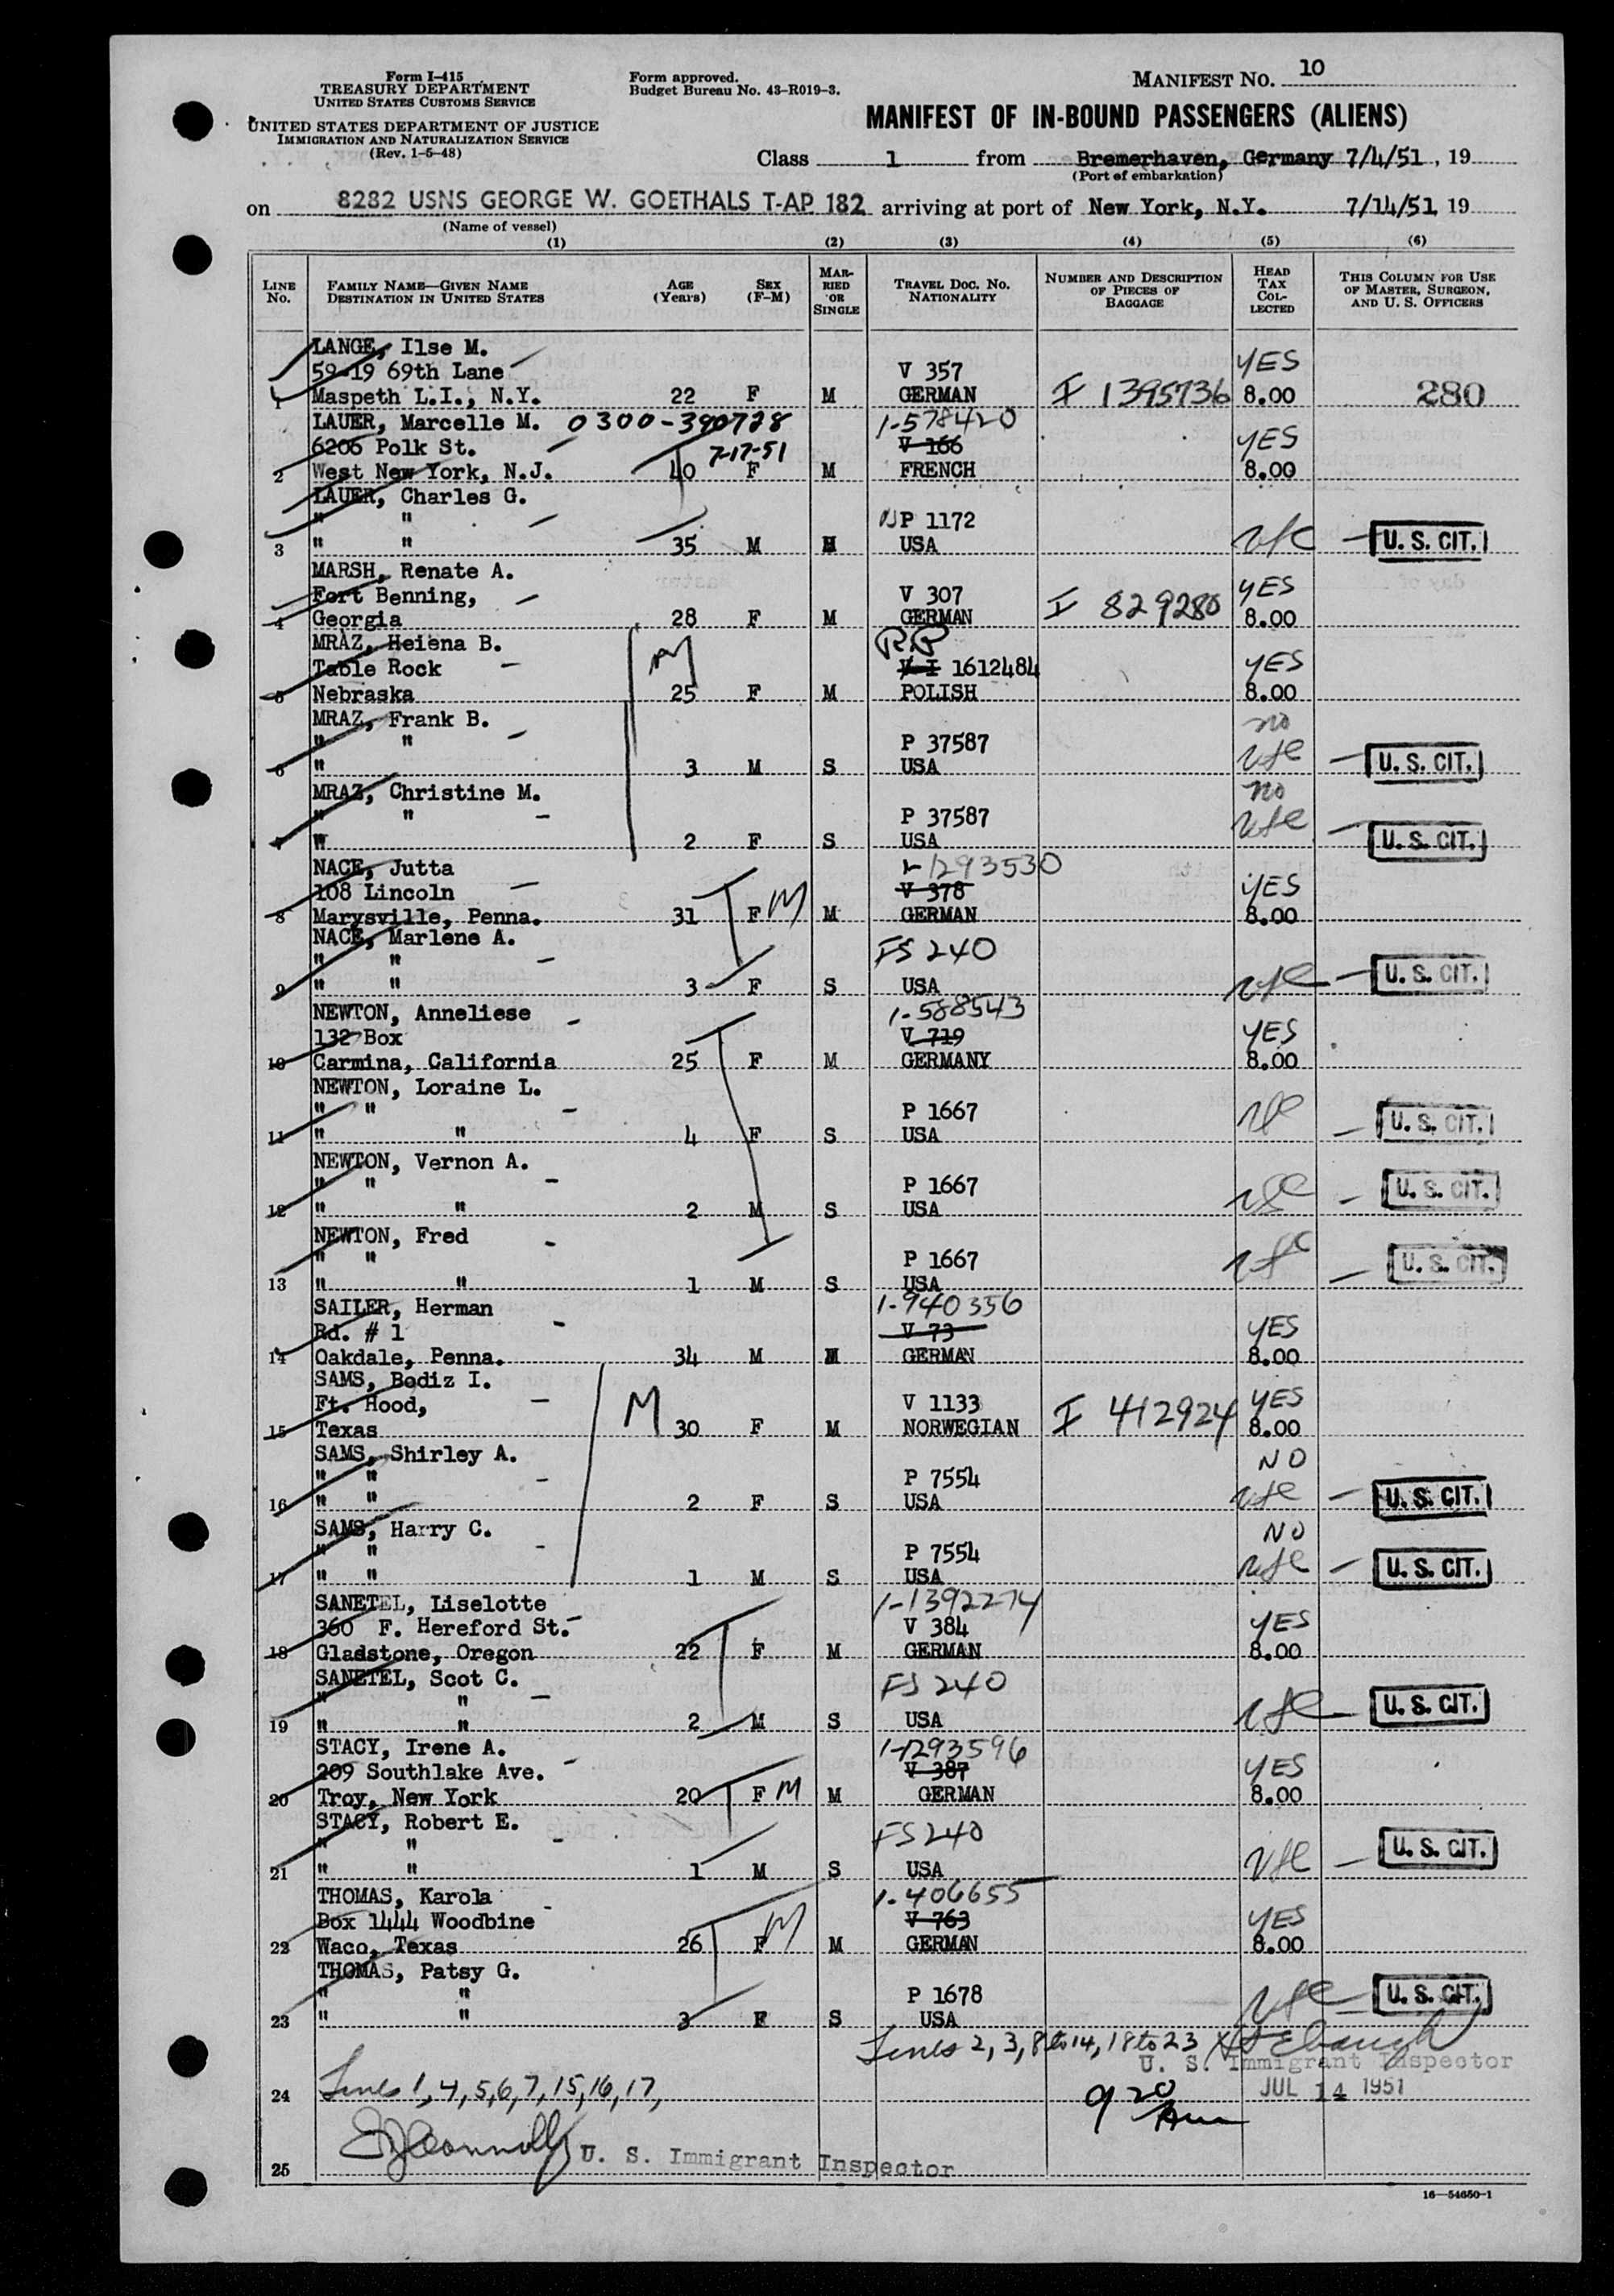 Form I-415
TREASURY DEPARTMENT
UNITED STATES CUSTOMS SERVICE
UNITED STATES DEPARTMENT OF JUSTICE
IMMIGRATION AND NATURALIZATION SERVICE
(Rev. 1-5-48)
Form approved.
Budget Bureau No. 43-R019-3.
MANIFEST NO. 10
MANIFEST OF IN-BOUND PASSENGERS (ALIENS)
Class 1 from Bremerhaven, Germany 7/4/51, 19
(Port of embarkation)
on 8282 USNS GEORGE W. GOETHALS T-AP 182 arriving at port of New York, N.Y. 7/14/51 19
(Name of vessel)
(1) (2) (3) (4) (5) (6)
LINE No. FAMILY NAME—GIVEN NAME DESTINATION IN UNITED STATES AGE (Years) SEX (F-M) MARRIED OR SINGLE TRAVEL DOC. NO. NATIONALITY NUMBER AND DESCRIPTION OF PIECES OF BAGGAGE HEAD TAX COLLECTED THIS COLUMN FOR USE OF MASTER, SURGEON, AND U. S. OFFICERS
LANGE, Ilse M.
59-19 69th Lane V 357 YES
1 Maspeth L.I., N.Y. 22 F M GERMAN I 1395736 8.00 280
LAUER, Marcelle M. 0300-390728 1-578420
6206 Polk St. 7-17-51 V 166 YES
2 West New York, N.J. 40 F M FRENCH 8.00
LAUER, Charles G.
" " P 1172
3 " " 35 M M USA U. S. CIT.
MARSH, Renate A.
Fort Benning, V 307 YES
4 Georgia 28 F M GERMAN I 829280 8.00
MRAZ, Helena B. RP
Table Rock M V I 1612484 YES
5 Nebraska 25 F M POLISH 8.00
MRAZ, Frank B. no
" " P 37587
6 " 3 M S USA U. S. CIT.
MRAZ, Christine M. no
" " P 37587
7 " 2 F S USA U. S. CIT.
NACE, Jutta 1293530
108 Lincoln V 378 YES
8 Marysville, Penna. 31 F M M GERMAN 8.00
NACE, Marlene A. FS 240
" "
9 " " 3 F S USA U. S. CIT.
NEWTON, Anneliese 1-588543
132 Box V 719 YES
10 Carmina, California 25 F M GERMANY 8.00
NEWTON, Loraine L.
" " P 1667
11 " " 4 F S USA U. S. CIT.
NEWTON, Vernon A.
" " P 1667
12 " " 2 M S USA U. S. CIT.
NEWTON, Fred
" " P 1667
13 " " 1 M S USA U. S. CIT.
SAILER, Herman 1-940356
Rd. # 1 V 73 YES
14 Oakdale, Penna. 34 M M GERMAN 8.00
SAMS, Bodiz I.
Ft. Hood, M V 1133 YES
15 Texas 30 F M NORWEGIAN I 412924 8.00
SAMS, Shirley A. NO
" " P 7554
16 " " 2 F S USA U. S. CIT.
SAMS, Harry C. NO
" " P 7554
17 " " 1 M S USA U. S. CIT.
SANETEL, Liselotte 1-1392274
360 F. Hereford St. V 384 YES
18 Gladstone, Oregon 22 F M GERMAN 8.00
SANETEL, Scot C. FS 240
" "
19 " " 2 M S USA U. S. CIT.
STACY, Irene A. 1-1293596
209 Southlake Ave. V 387 YES
20 Troy, New York 20 F M M GERMAN 8.00
STACY, Robert E. FS 240
" "
21 " " 1 M S USA U. S. CIT.
THOMAS, Karola 1-406655
Box 1444 Woodbine M V 763 YES
22 Waco, Texas 26 F M GERMAN 8.00
THOMAS, Patsy G.
" " P 1678
23 " " 3 F S USA U. S. CIT.
Lines 2, 3, 8 to 14, 18 to 23
U. S. Immigrant Inspector
24 Lines 1, 4, 5, 6, 7, 15, 16, 17, 9 20 Am JUL 14 1951
25 U. S. Immigrant Inspector
16—54650-1